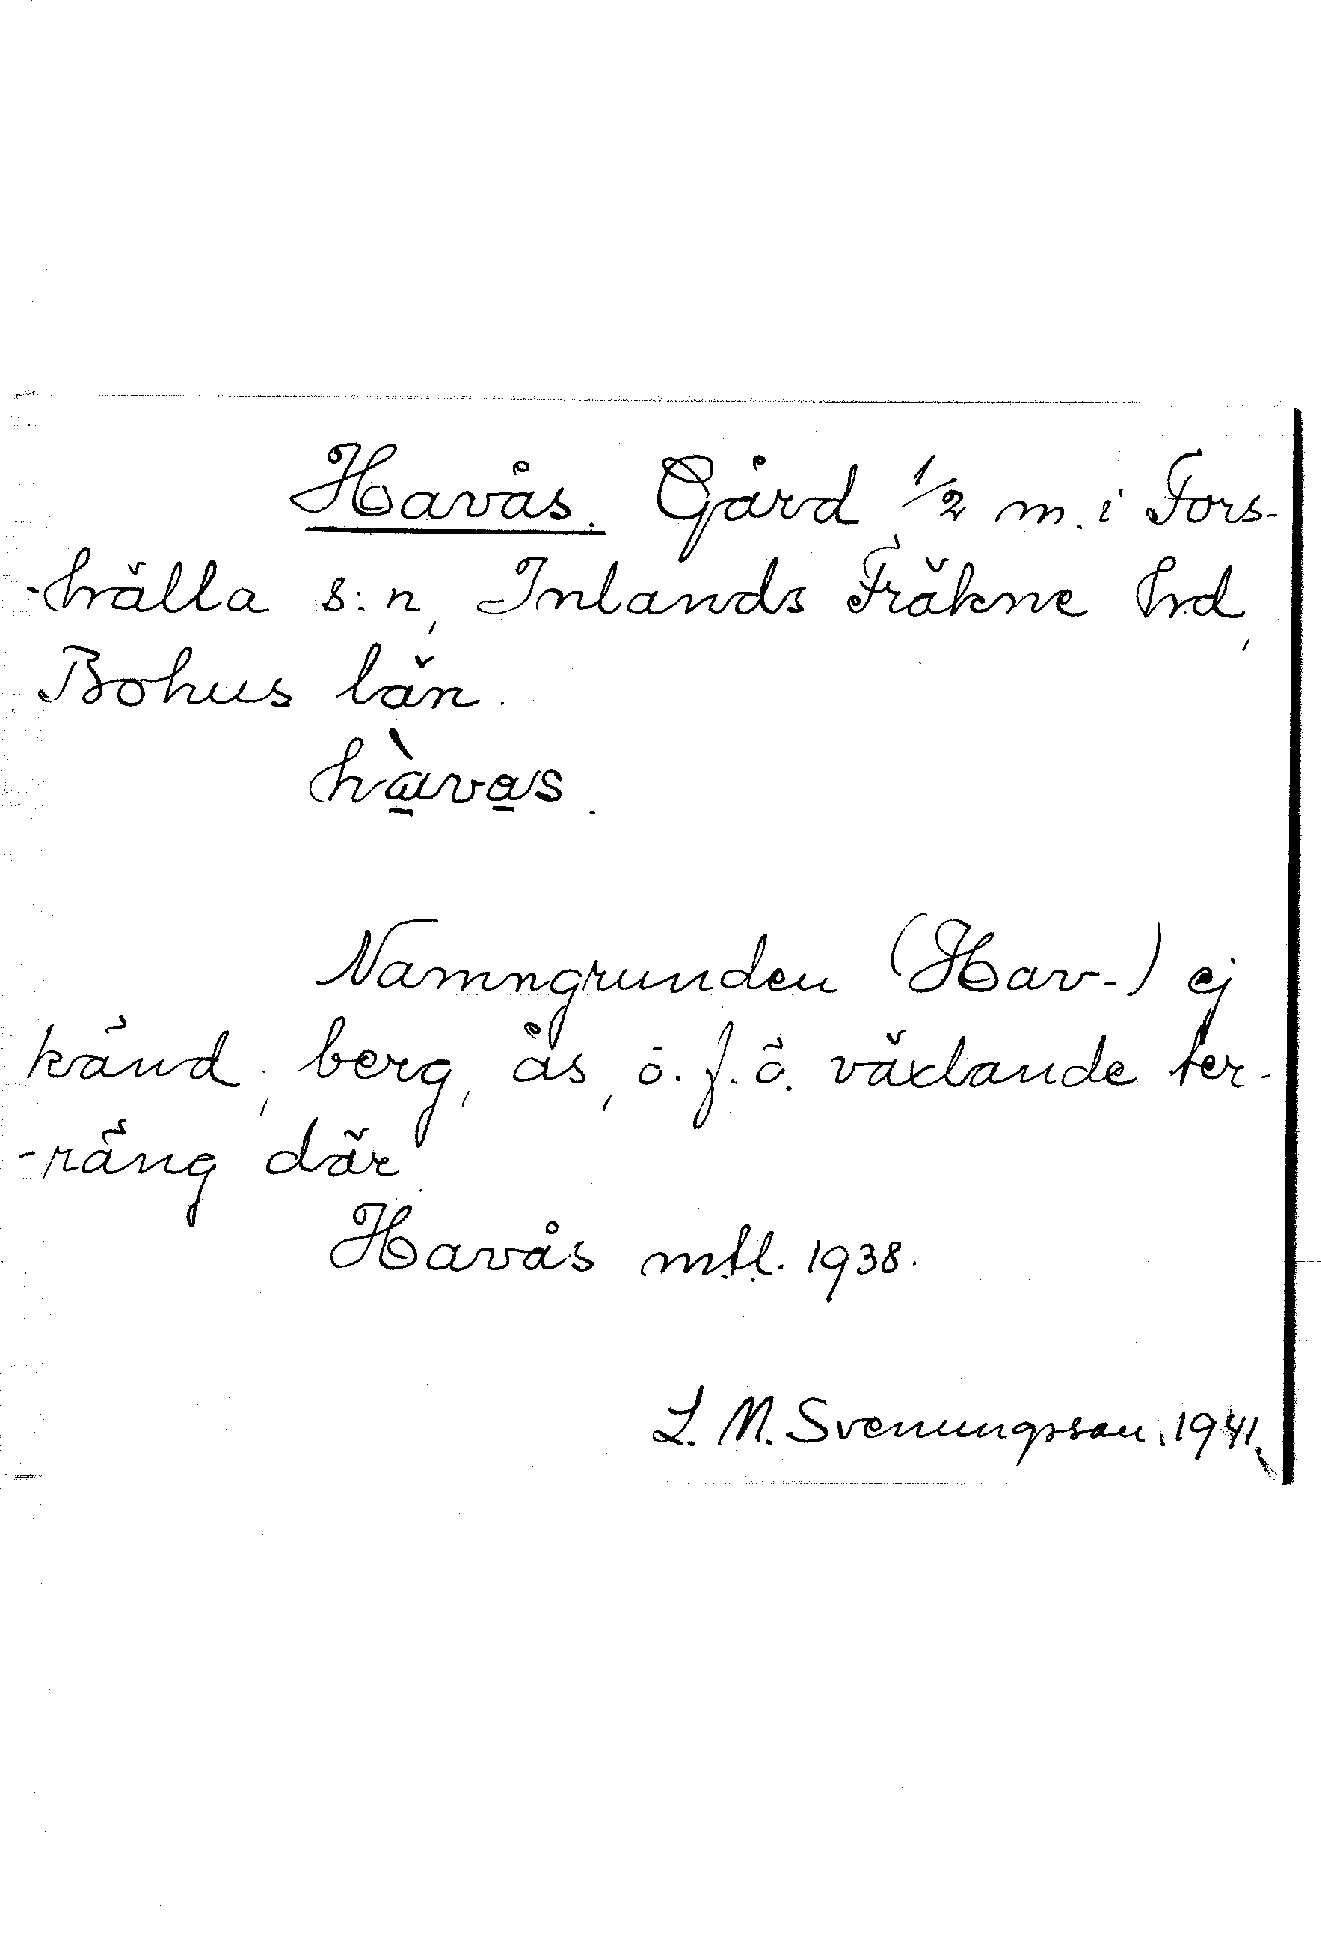 Havås. Gård 1/2 m. i Fors-
-hälla s:n, Inlands Fräkne hrd,
Bohus län.
hàvas.
Namngrunden (Hav-) ej
känd, berg, ås, ö.f.ö. växlande ter-
-räng där.
Havås mtl. 1938.
L. M. Svenungsson, 1941.